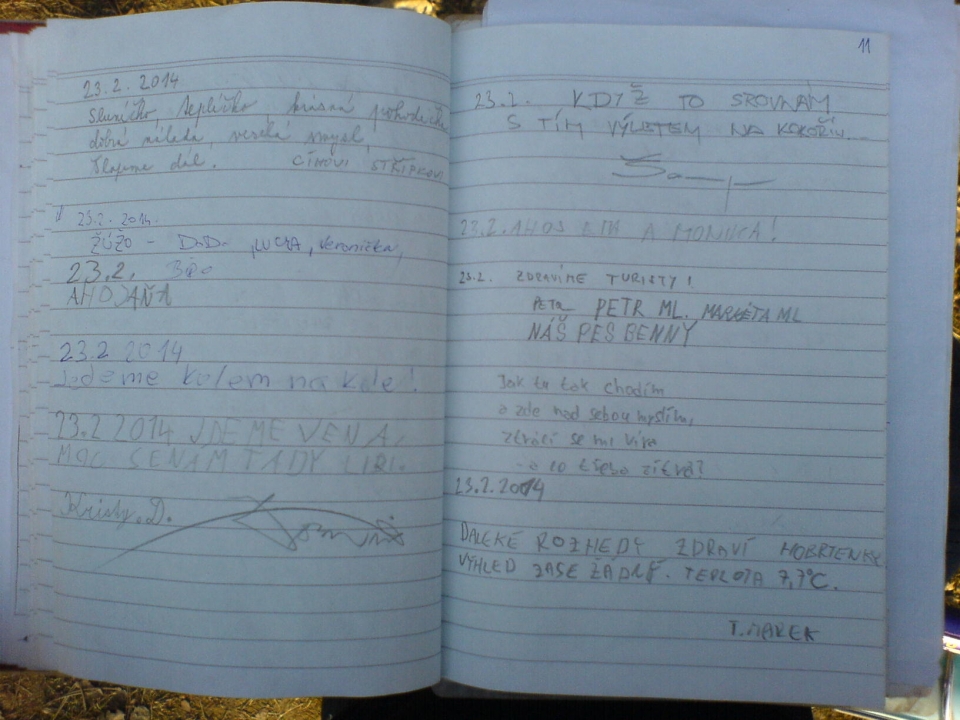 23.2. 2014
Sluníčko, teplíčko, krásná pohodička
dobrá nálada, veselá mysl,
Šlapeme dál. CÍNOVI STŘÍPKOVÉ
23.2. 2014.
ŽÚŽO - D.D. , LUCKA, Veronička,
23.2.
AHOJ AŇA
23.2 2014
Jedeme kolem na kole!
23.2 2014 JDEME VEN A,
MOC SE NÁM TADY LIBI.
Kristy. D.
11
23.2. KDYŽ TO SROVNÁM
S TÍM VÝLETEM NA KOKOŘÍN...
23.2. AHOJ A MONIKA!
23.2. ZDRAVÍME TURISTY!
PETR PETR ML. MARKÉTA ML
NÁŠ PES BENNY
Jak tu tak chodím
a zde nad sebou myslím,
ztrácí se mi víra
- a co třeba zítra?
23.2.2014
DALEKÉ ROZHEDY ZDRAVÍ
VÝHLED ZASE ŽÁDNÝ. TEPLOTA 7,7°C.
T. MAREK